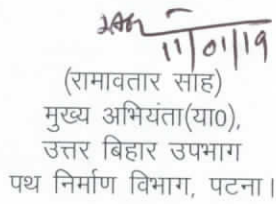 11/01/19
(रामावतार साह)
मुख्य अभियंता(या0),
उत्तर बिहार उपभाग
पथ निर्माण विभाग, पटना।